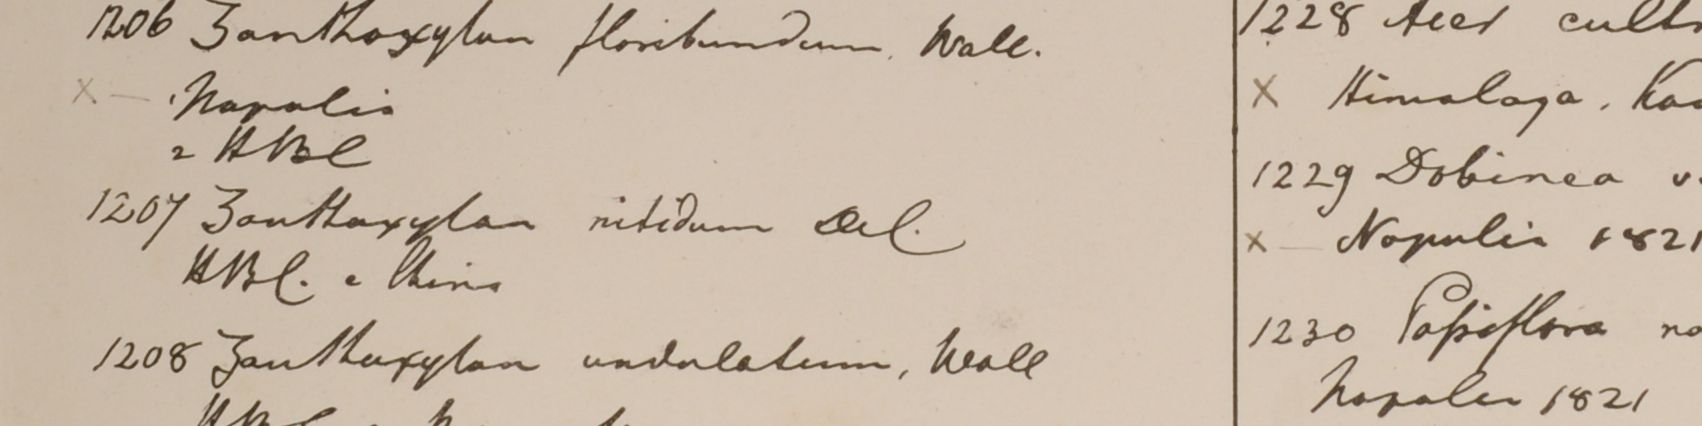 1206 Zanthoxylon floribundum, Wall.
Napalia
2 HBC
1207 Zanthoxylon nitidum Del.
HBC. e China
1208 Zanthoxylon undulatum, Wall
HBC
1228 Acer cult
Himalaya. Ka
1229 Dobinea v
Napalia 1821
1230 Passiflora na
Napalia 1821